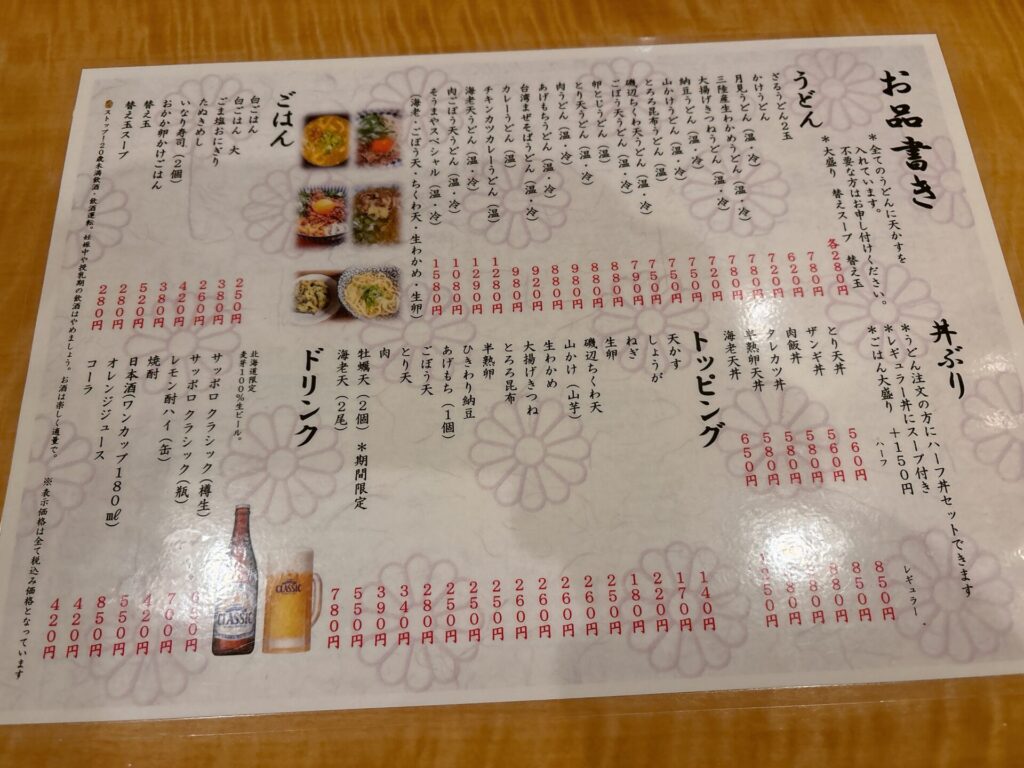 お品書き
＊全てのうどんに天かすを
入れています。
不要な方はお申し付けください。
＊大盛り 替えスープ 替え玉 各280円
うどん
ざるうどん2玉 780円
かけうどん 620円
月見うどん（温・冷） 720円
三陸産生わかめうどん（温・冷） 780円
大揚げきつねうどん（温・冷） 780円
納豆うどん（温・冷） 720円
山かけうどん（温・冷） 750円
とろろ昆布うどん（温・冷） 720円
磯辺ちくわ天うどん（温・冷） 750円
ごぼう天うどん（温・冷） 750円
卵とじうどん（温）
とり天うどん（温・冷） 880円
肉うどん（温・冷）
あげもちうどん（温・冷） 880円
台湾まぜそばうどん（温・冷） 920円
カレーうどん（温） 980円
チキンカツカレーうどん（温） 1280円
海老天うどん（温・冷） 1290円
肉ごぼう天うどん（温・冷） 1080円
そうまやスペシャル（温・冷） 1580円
（海老・ごぼう天・ちくわ天・生わかめ・生卵）
ごはん
白ごはん 250円
白ごはん 大 380円
ごま塩おにぎり 260円
たぬきめし 420円
いなり寿司（2個） 380円
おかか卵かけごはん 520円
替え玉 280円
替え玉スープ 280円
ストップ！20歳未満飲酒・飲酒運転。妊娠中や授乳期の飲酒はやめましょう。お酒は楽しく適量で。
丼ぶり
＊うどん注文の方にハーフ丼セットできます
＊レギュラー丼にスープ付き
＊ごはん大盛り ＋150円
ハーフ レギュラー
とり天丼 560円 850円
ザンギ丼 560円 850円
肉飯丼 580円 880円
タレカツ丼 580円 880円
半熟卵天丼 580円 880円
海老天丼 650円
トッピング
天かす 140円
しょうが 170円
ねぎ 220円
生卵 180円
磯辺ちくわ天 250円
山かけ（山芋） 260円
生わかめ 260円
大揚げきつね 260円
とろろ昆布 260円
半熟卵
ひきわり納豆 250円
あげもち（1個） 250円
ごぼう天 280円
とり天 340円
肉 390円
牡蠣天（2個）＊期間限定 550円
海老天（2尾） 780円
ドリンク
北海道限定
麦芽100％生ビール。
サッポロ クラシック（樽生） 690円
サッポロ クラシック（瓶） 700円
レモン酎ハイ（缶） 420円
焼酎 550円
日本酒（ワンカップ180㎖） 850円
オレンジジュース 420円
コーラ 420円
※表示価格は全て税込み価格となっています
CLASSIC
CLASSIC